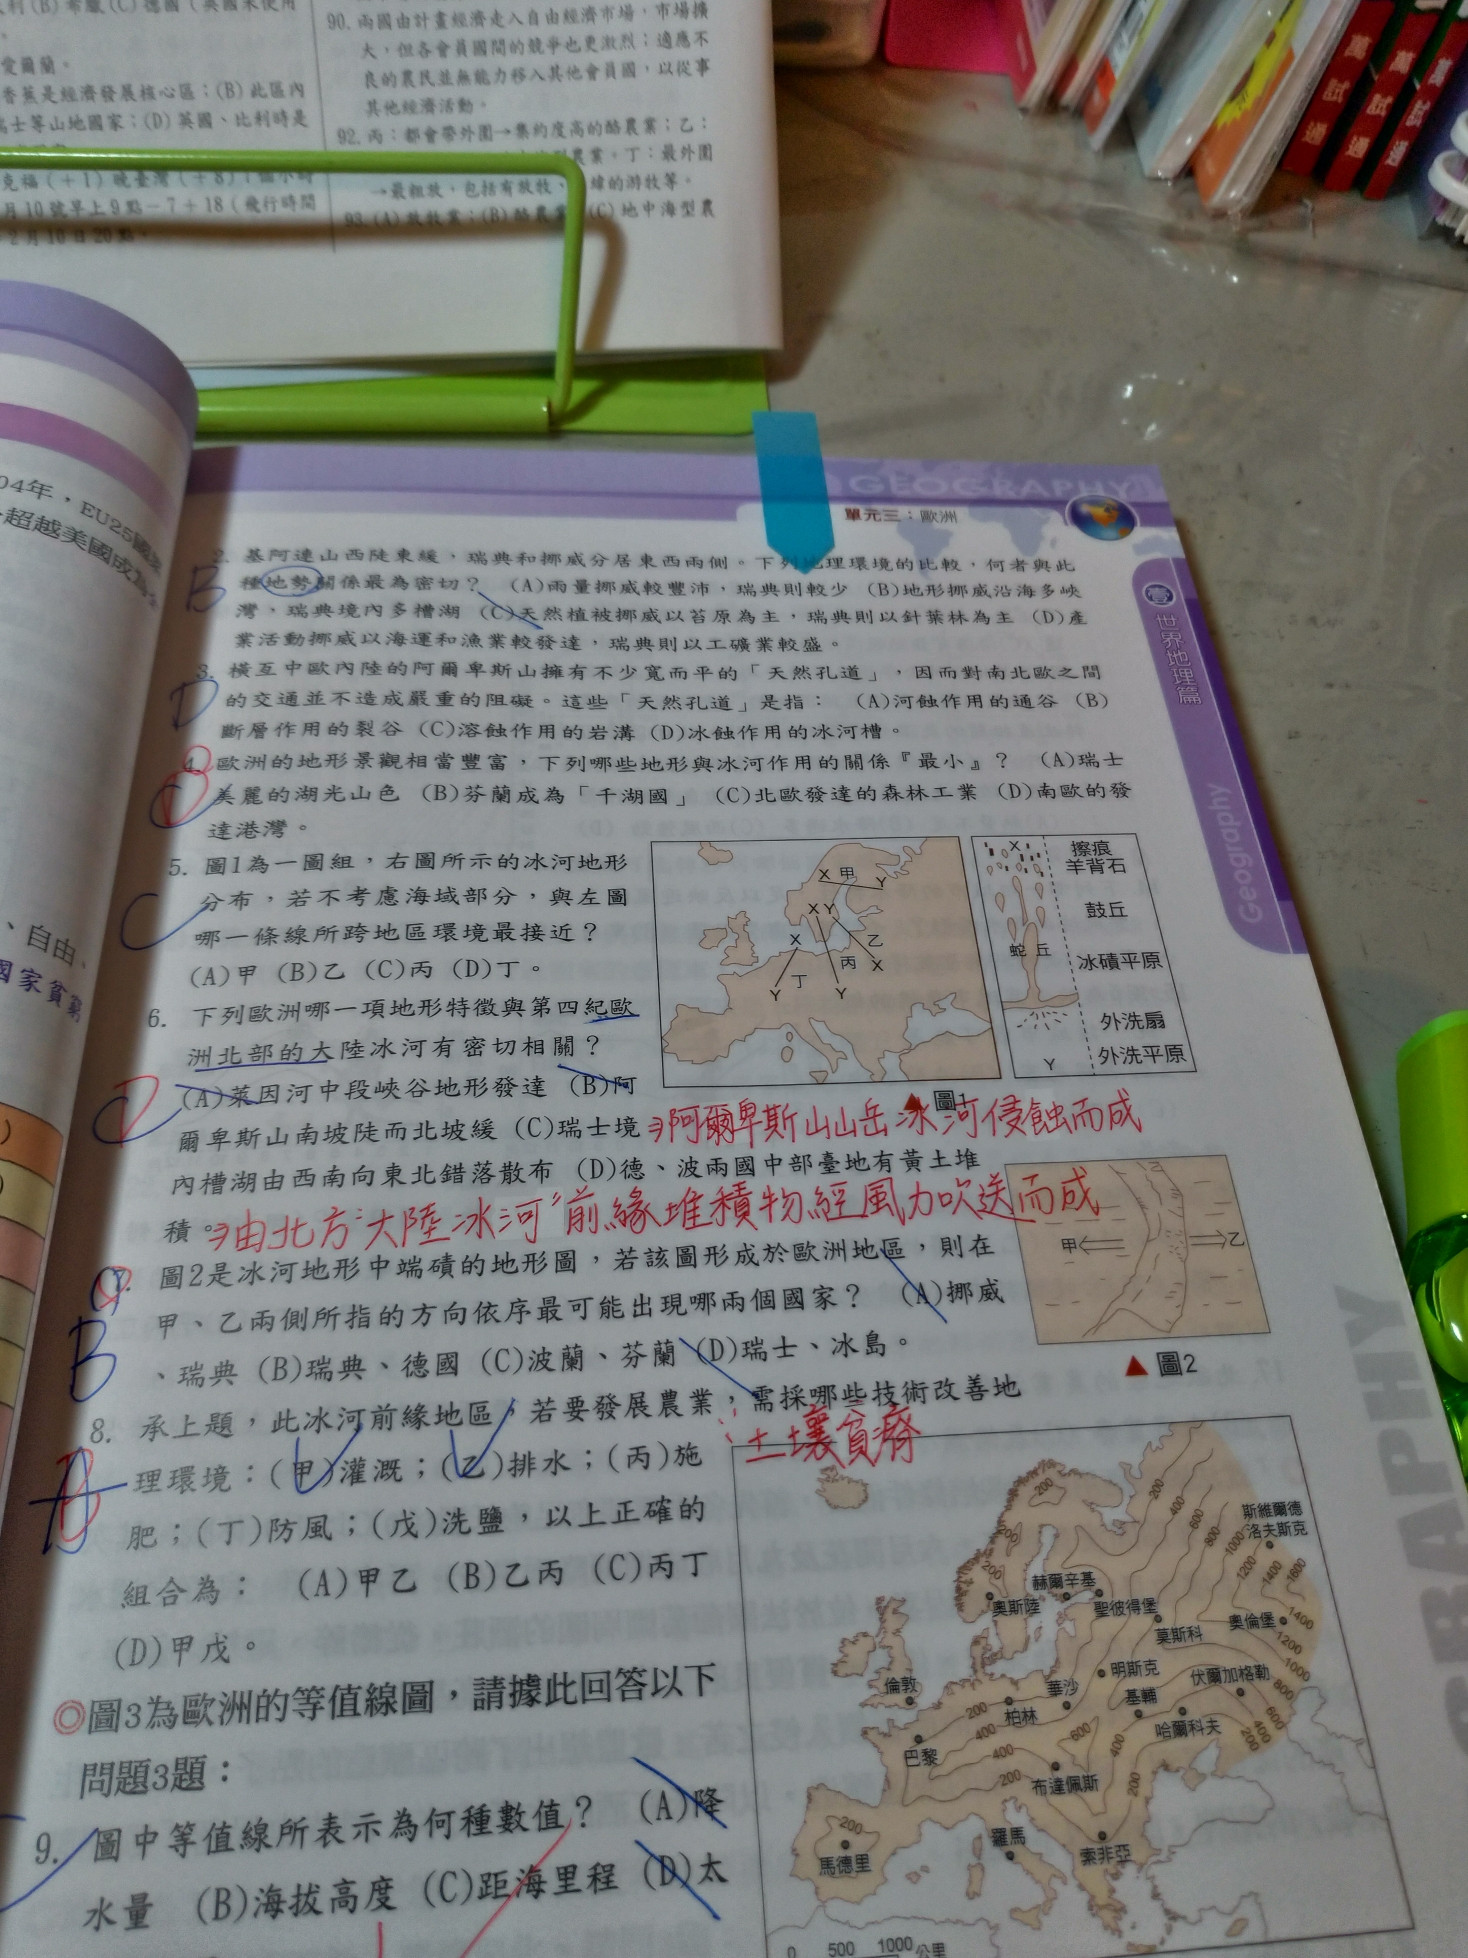 90. 兩國由計畫經濟走入自由經濟市場，市場擴
大，但各會員國間的競爭也更激烈；適應不
良的農民並無能力移入其他會員國，以從事
其他經濟活動。
92. 丙：都會帶外圍→集約度高的酪農業；乙：
農業。丁：最外圍
→最粗放，包括有放牧、
緯的游牧等。
93. (A)放牧業；(B)酪農業
(C)地中海型農
愛爾蘭。
香蕉是經濟發展核心區；(B)此區內
士等山地國家；(D)英國、比利時是
月10號早上9點－7＋18（飛行時間
2月10日20點。
萬試通
萬試通
萬試通
04年，EU25國
超越美國成為
、自由、
國家貧窮
GEOGRAPHY
單元三：歐洲
壹 世界地理篇
Geography
2. 基阿連山西陡東緩，瑞典和挪威分居東西兩側。下列地理環境的比較，何者與此
B
種地勢關係最為密切？ (A)雨量挪威較豐沛，瑞典則較少 (B)地形挪威沿海多峽
灣，瑞典境內多槽湖 (C)天然植被挪威以苔原為主，瑞典則以針葉林為主 (D)產
業活動挪威以海運和漁業較發達，瑞典則以工礦業較盛。
3. 橫亙中歐內陸的阿爾卑斯山擁有不少寬而平的「天然孔道」，因而對南北歐之間
D
的交通並不造成嚴重的阻礙。這些「天然孔道」是指： (A)河蝕作用的通谷 (B)
斷層作用的裂谷 (C)溶蝕作用的岩溝 (D)冰蝕作用的冰河槽。
4. 歐洲的地形景觀相當豐富，下列哪些地形與冰河作用的關係『最小』？ (A)瑞士
美麗的湖光山色 (B)芬蘭成為「千湖國」 (C)北歐發達的森林工業 (D)南歐的發
達港灣。
5. 圖1為一圖組，右圖所示的冰河地形
分布，若不考慮海域部分，與左圖
C
哪一條線所跨地區環境最接近？
(A)甲 (B)乙 (C)丙 (D)丁。
X 甲 Y
X Y
X
乙
丙
X
丁
Y
Y
X
擦痕
羊背石
鼓丘
蛇丘
冰磧平原
外洗扇
外洗平原
Y
▲ 圖1
6. 下列歐洲哪一項地形特徵與第四紀歐
洲北部的大陸冰河有密切相關？
D
(A)萊因河中段峽谷地形發達 (B)阿
爾卑斯山南坡陡而北坡緩 (C)瑞士境
阿爾卑斯山山岳冰河侵蝕而成
內槽湖由西南向東北錯落散布 (D)德、波兩國中部臺地有黃土堆
積。
由北方"大陸冰河"前緣堆積物經風力吹送而成
7. 圖2是冰河地形中端磧的地形圖，若該圖形成於歐洲地區，則在
甲、乙兩側所指的方向依序最可能出現哪兩個國家？ (A)挪威
B
、瑞典 (B)瑞典、德國 (C)波蘭、芬蘭 (D)瑞士、冰島。
甲
乙
▲ 圖2
8. 承上題，此冰河前緣地區，若要發展農業，需採哪些技術改善地
∵土壤貧瘠
理環境：(甲)灌溉；(乙)排水；(丙)施
肥；(丁)防風；(戊)洗鹽，以上正確的
組合為： (A)甲乙 (B)乙丙 (C)丙丁
(D)甲戊。
◎圖3為歐洲的等值線圖，請據此回答以下
問題3題：
9. 圖中等值線所表示為何種數值？ (A)降
水量 (B)海拔高度 (C)距海里程 (D)太
200
200
200
200
400
600
800
1000
1200
1400
1600
斯維爾德
洛夫斯克
赫爾辛基
奧斯陸
聖彼得堡
莫斯科
奧倫堡
1400
1200
1000
800
600
400
200
倫敦
明斯克
伏爾加格勒
華沙
柏林
基輔
哈爾科夫
200
400
600
400
400
巴黎
200
布達佩斯
200
200
馬德里
羅馬
索非亞
0 500 1000 公里
GRAPHY